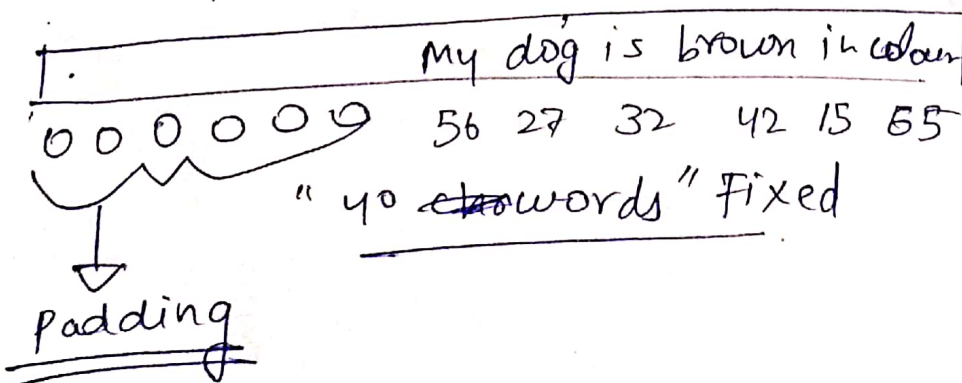 My dog is brown in colour
0 0 0 0 0 0 56 27 32 42 15 65
"40 words" Fixed
Padding